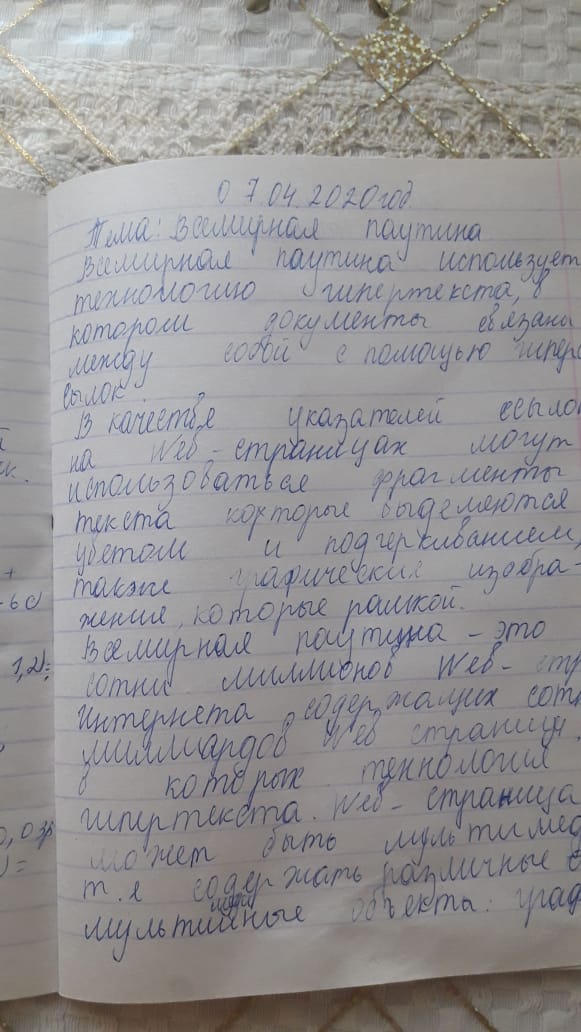 07.04.2020год.
Тема: Всемирная паутина
Всемирная паутина использует
технологию гипертекста, в
котором документы связаны
между собой с помощью гиперс
сылок
В качестве указателей ссылок
на Web-страницах могут
использоваться фрагменты
текста которые выделяются
цветом и подчеркиванием,
также графические изобра-
жения, которые рамкой.
Всемирная паутина - это
сотни миллионов Web-стр
Интернета, содержащих сотн
миллиардов Web страниц.
в которых технология
гипертекста. Web-страница
может быть мультимед
т.е содержать различные
мультимедийные объекты: граф
к.
+
1,2);